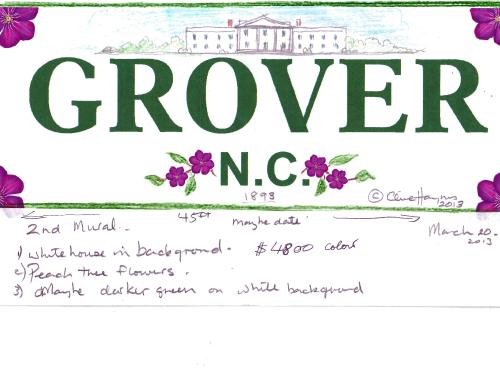 GROVER
N.C.
1893
© Clive Haynes
2013
2nd Mural..
45ft
maybe date
March 20.
2013
1) white house in background. $4800 colour
2) Peach tree flowers.
3) Maybe darker green on white background